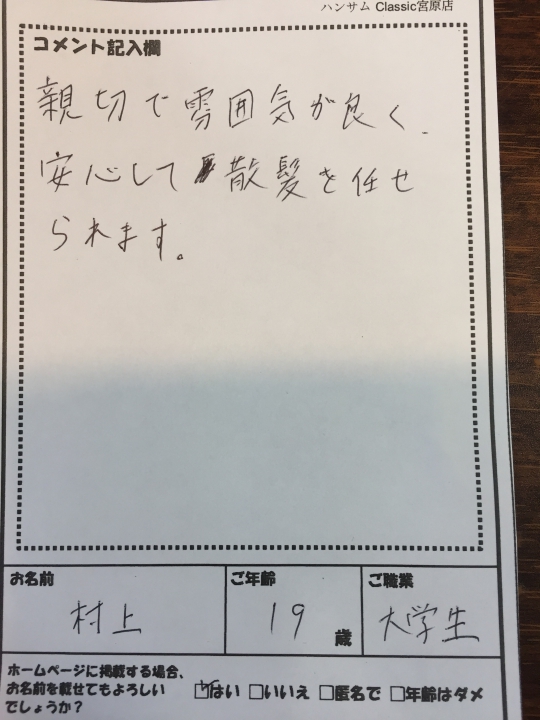 ハンサム Classic宮原店
コメント記入欄
親切で雰囲気が良く、
安心して散髪を任せ
られます。
お名前 ご年齢 ご職業
村上 19 歳 大学生
ホームページに掲載する場合、
お名前を載せてもよろしい
でしょうか?
☑はい □いいえ □匿名で □年齢はダメ